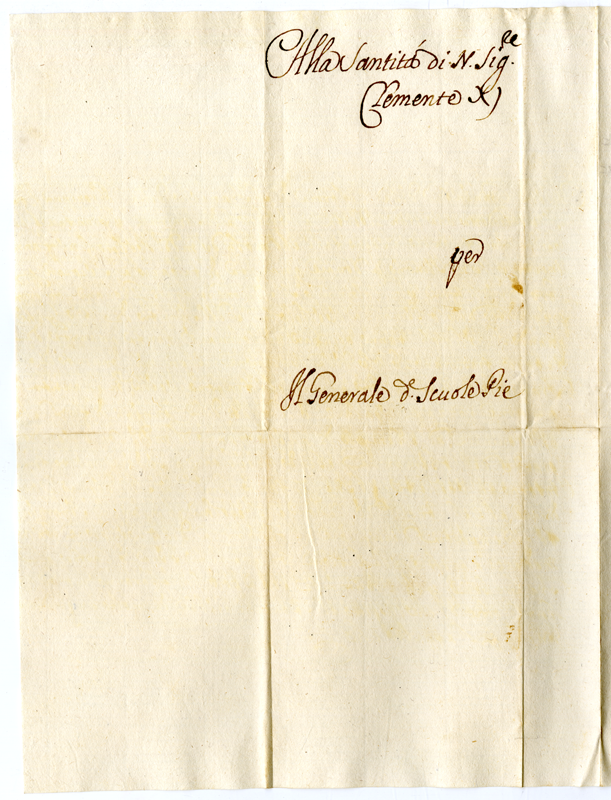 Alla Santità di N. Sig.re
Clemente X)
per
Il Generale d.e Scuole Pie